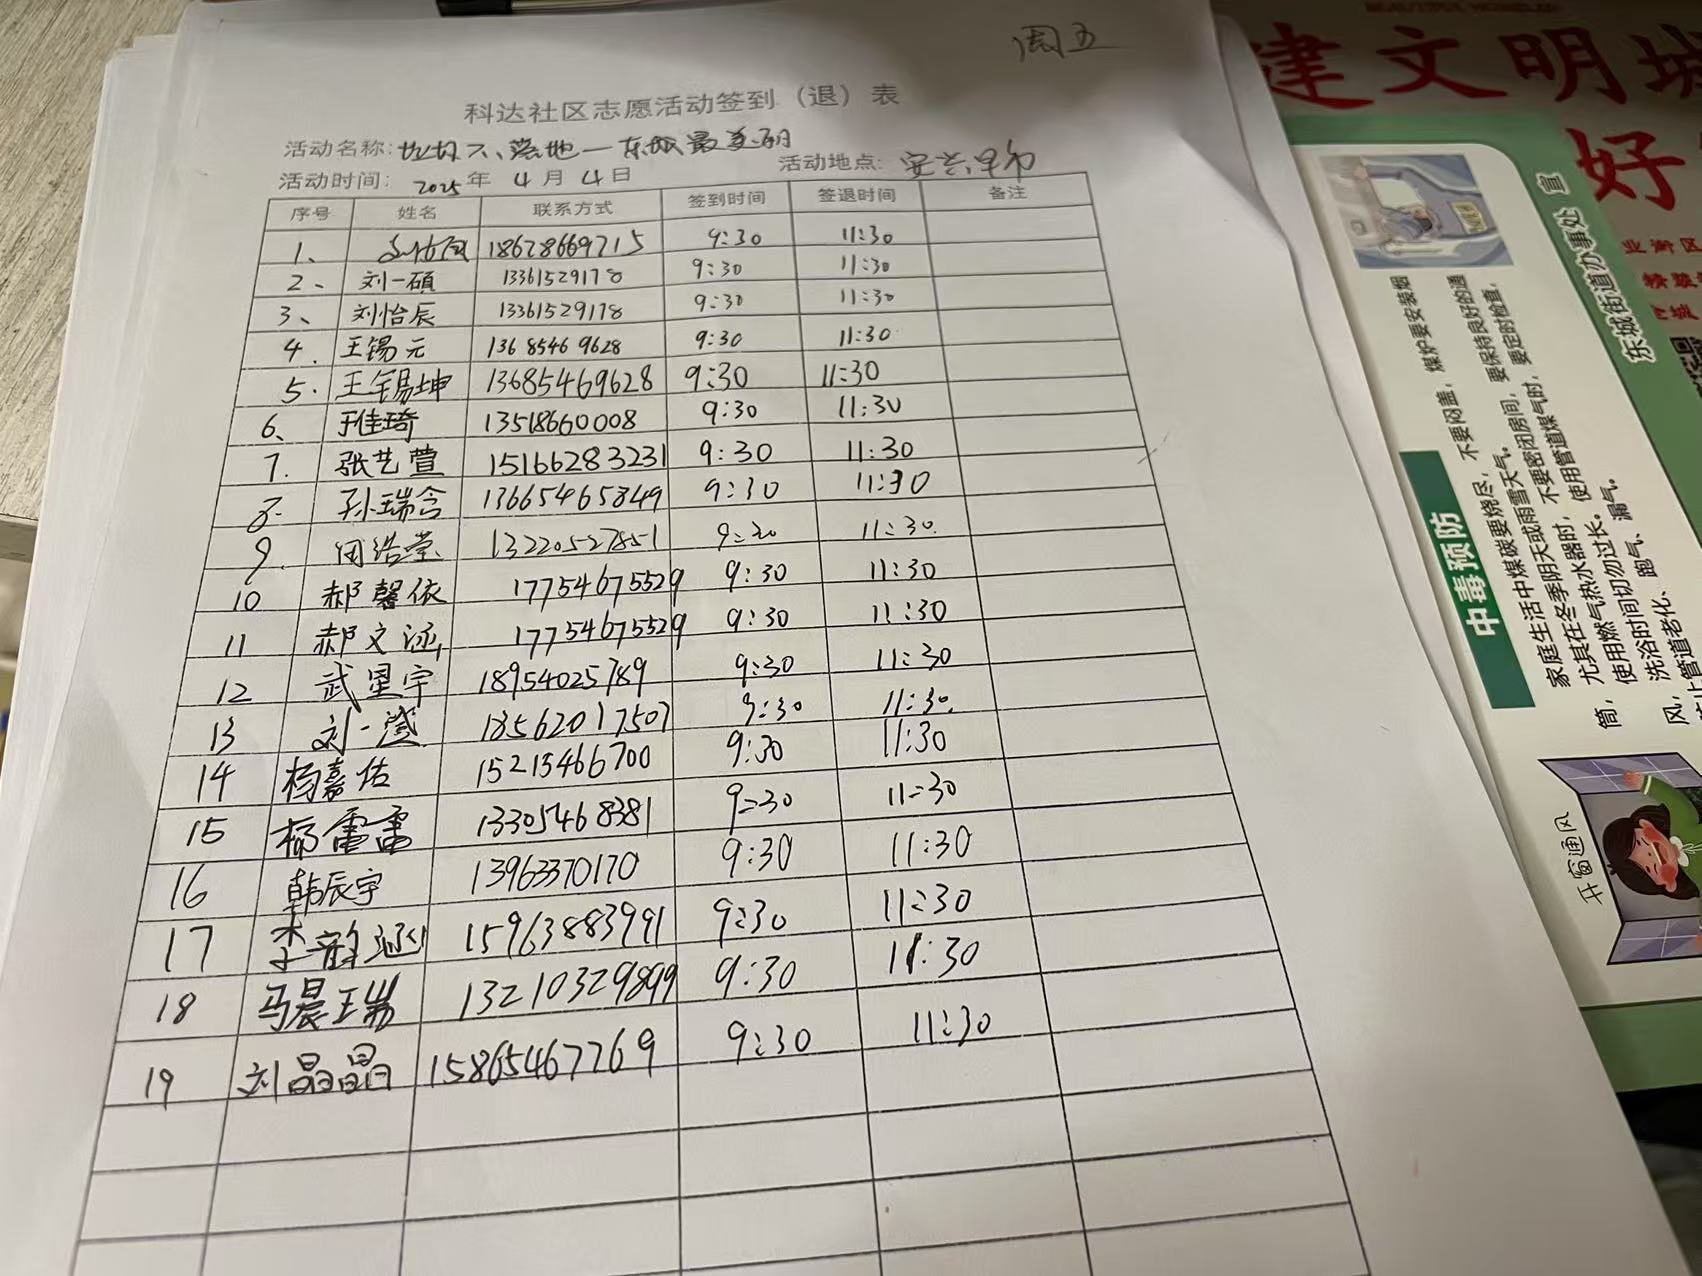 周五
科达社区志愿活动签到（退）表
活动名称：垃圾不落地—东城最美丽
活动地点：安兴早市
活动时间： 2025年 4月 4日
序号 姓名 联系方式 签到时间 签退时间 备注
1、 18678669715 9:30 11:30
2、 刘一硕 13361529178 9:30 11:30
3、 刘怡辰 13361529178 9:30 11:30
4. 王锡元 13685469628 9:30 11:30
5. 王锡坤 13685469628 9:30 11:30
6、 于佳琦 13518660008 9:30 11:30
7. 张艺萱 15166283231 9:30 11:30
8. 孙瑞含 13665465849 9:30 11:30
9. 闵浩莹 13220527851 9:30 11:30
10 郝馨依 17754675529 9:30 11:30
11 郝文涵 17754675529 9:30 11:30
12 武星宇 18954025789 9:30 11:30
13 刘一澄 18562017507 9:30 11:30
14 杨嘉佑 15215466700 9:30 11:30
15 杨雷雷 13305468381 9:30 11:30
16 韩辰宇 13963370170 9:30 11:30
17 李韵涵 15963883991 9:30 11:30
18 马晨瑞 13210329899 9:30 11:30
19 刘晶晶 15865467769 9:30 11:30
建文明城
好
东城街道办事处 宣
煤炉要安装烟
筒，
中毒预防
家庭生活中煤碳要烧尽，不要闷盖，
尤其在冬季阴天或雨雪天气。
使用燃气热水器时，不要密闭房间，要保持良好的通
风，洗浴时间切勿过长。使用管道煤气时，要定时检查，
防止管道老化、跑气、漏气。
开窗通风